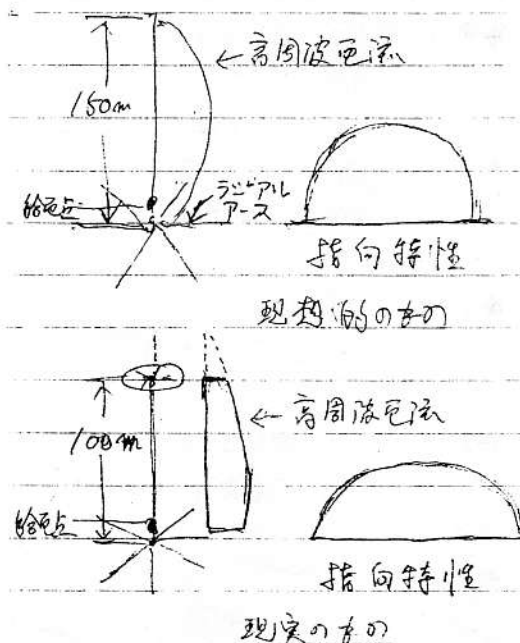 高周波電流
150m
ラジアル
アース
給電点
指向特性
理想的のもの
高周波電流
100m
給電点
指向特性
現実のもの